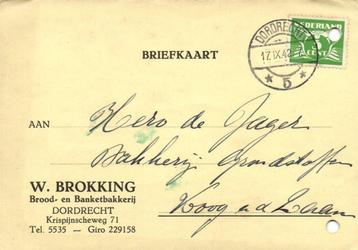 BRIEFKAART
NEDERLAND
CENT
DORDRECHT
17.IX.42
5
AAN
Hero de Jager
Bakkerij Grondstoffen
Koog a.d. Zaan
W. BROKKING
Brood- en Banketbakkerij
DORDRECHT
Krispijnscheweg 71
Tel. 5535 — Giro 229158